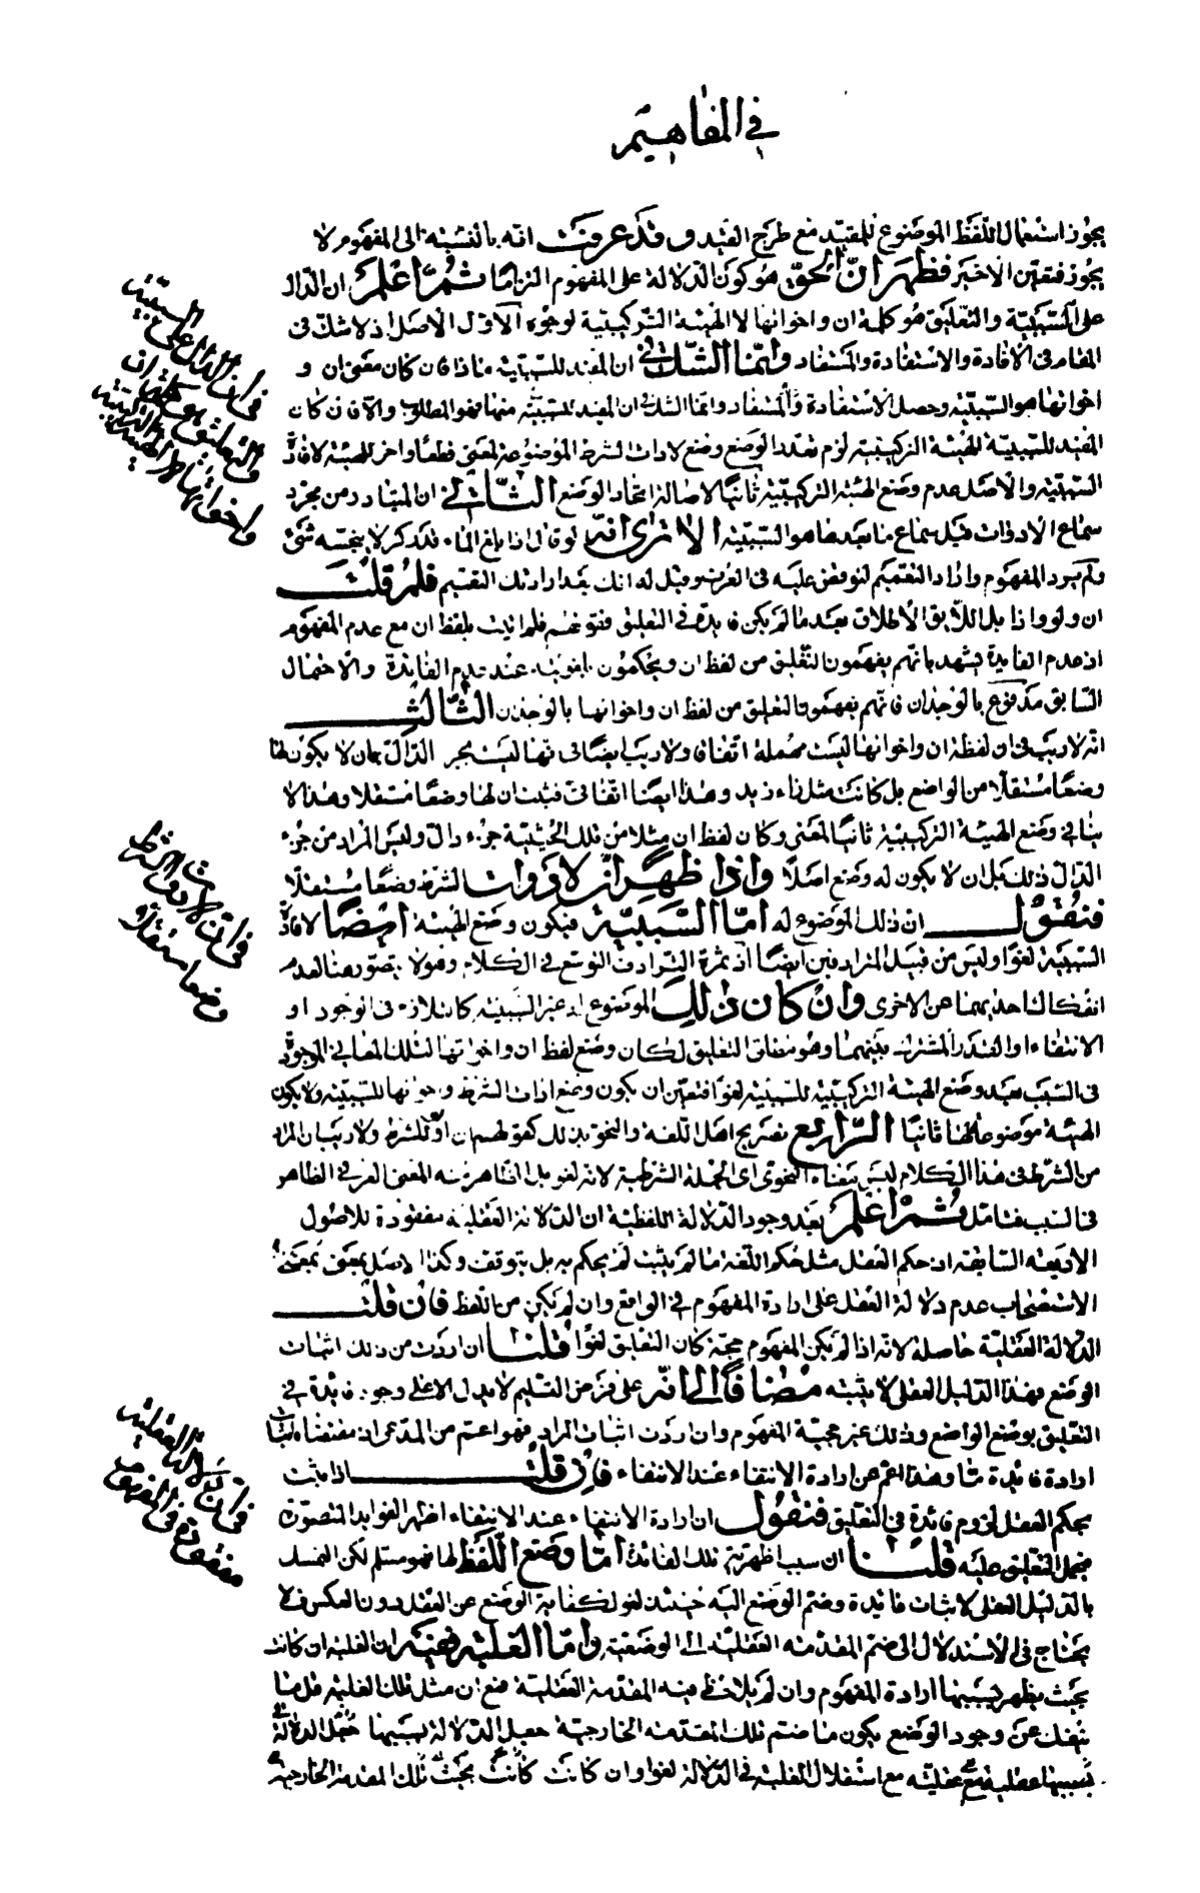 في المفاهيم
يجوز استعمال اللفظ الموضوع للمقيد مع طرح القيد وقد عرفت انه بالنسبة الى المفهوم لا
يجوز فتعين الاخير فظهر ان الحق هو كون الدلالة على المفهوم التزاما ثم اعلم ان الدال
على السببية والتعليق هو كلمة ان واخواتها لا الهيئة التركيبية لوجوه الاول الاصل اذ لا شك في
المقام في الافادة والاستفادة والمستفاد وانما الشك في ان المفيد للسببية ماذا فان كان معنى ان و
اخواتها هو السببية وحصل الاستفادة والمستفاد وانما الشك في ان المفيد للسببية منها فهو المطلوب والا فان كان
المفيد للسببية الهيئة التركيبية لزم تعدد الوضع وضع لادات الشرط الموضوعة لمعنى قطعا واخر للهيئة لافادة
السببية والاصل عدم وضع الهيئة التركيبية ثانيا لاصالة اتحاد الوضع الثاني ان المتبادر من مجرد
سماع الادوات قبل سماع ما بعدها هو السببية الا ترى انه لو قال اذا بلغ الماء قدر كر لا ينجسه شئ
ولم يرد المفهوم واراد التعميم لنوقض عليه في العرف وقيل له انك بعد ارادتك التعميم فلم قلت
ان ولو واذا بل اللايق الاطلاق بعد ما لم يكن فايدة في التعليق فقولهم فلم اتيت بلفظ ان مع عدم المفهوم
اذ عدم الفايدة يشهد بانهم يفهمون التعليق من لفظ ان ويحكمون بلغويته عند عدم الفائدة والاحتمال
السابق مدفوع بالوجدان فانهم يفهمون التعليق من لفظ ان واخواتها بالوجدان الثالث
انه لا ريب في ان لفظة ان واخواتها ليست مهملة اتفاقا ولا ريب ايضا في انها ليست بجزء الدال بان لا يكون لها
وضعا مستقلا من الواضع بل كانت مثل زاء زيد وهذا ايضا اتفاقي فثبت ان لها وضعا مستقلا وهذا لا
ينافي وضع الهيئة التركيبية ثانيا لمعنى وكان لفظ ان مثلا من تلك الحيثية جزء دال وليس المراد من جزء
الدال ذلك بل ان لا يكون له وضع اصلا واذا ظهر ان لادوات الشرط وضعا مستقلا
فنقول ان ذلك الموضوع له اما السببية فيكون وضع الهيئة ايضا لافادة
السببية لغوا وليس من قبيل المترادفين ايضا اذ ثمرة الترادف التوسع في الكلام وهو لا يتصور هنا لعدم
انفكاك احديهما عن الاخرى وان كان ذلك الموضوع له غير السببية كالتلازم في الوجود او
الانتفاء او القدر المشترك بينهما وهو مطلق التعليق لكان وضع لفظ ان واخواتها لتلك المعاني الموجودة
في السبب بعد وضع الهيئة التركيبية للسببية لغوا فتعين ان يكون وضع ادات الشرط واخواتها للسببية ولا يكون
الهيئة موضوعة لها ثانيا الرابع تصريح اهل اللغة والنحو بذلك كقولهم ان او لو للشرط ولا ريب ان المراد
من الشرط في هذا الكلام ليس معناه النحوي اي الجملة الشرطية لانه لغو بل الظاهر منه المعنى العرفي الظاهر
في السبب فتامل ثم اعلم بعد وجود الدلالة اللفظية ان الدلالة العقلية مفقودة للاصول
الاربعة السابقة اذ حكم العقل مثل حكم اللغة ما لم يثبت لم يحكم به بل يتوقف وكذا الاصل بمعنى
الاستصحاب عدم دلالة العقل على ارادة المفهوم في الواقع وان لم يكن من اللفظ فان قلت
الدلالة العقلية حاصلة لانه اذا لم يكن المفهوم حجة كان التعليق لغوا قلنا ان اردت من ذلك اثبات
الوضع بهذا الدليل العقلي لا يثبته مضافا الى انه على فرض التسليم لا يدل الا على وجود فائدة في
التعليق بوضع الواضع وذلك غير حجية المفهوم وان اردت اثبات المراد فهو اعم من المدعى اذ مقتضاه اثبات
ارادة فائدة ما وهذا اعم من ارادة الانتفاء عند الانتفاء فان قلت اذا ثبت
بحكم العقل لزوم فائدة في التعليق فنقول ان ارادة الانتفاء عند الانتفاء اظهر الفوايد المتصورة
فيحمل التعليق عليه قلنا ان سبب اظهرية تلك الفائدة اما وضع اللفظ لها فهو مسلم لكن التمسك
بالدليل العقلي لاثبات فائدة وضم الوضع اليه حينئذ لغو لكفاية الوضع عن العقل دون العكس فلا
يحتاج في الاستدلال الى ضم المقدمة العقلية الى الوضعية واما الغلبة ففيه ان الغلبة ان كانت
بحيث يظهر بسببها ارادة المفهوم وان لم يلاحظ فيه المقدمة العقلية فمع ان مثل تلك الغلبة قلما
ينفك عن وجود الوضع يكون ما ضم تلك المقدمة الخارجية جعل الدلالة بسببها جعل الدلالة
بسببها عقلية مع استقلال الغلبة في الدلالة لغوا وان كانت كانت بحيث تلك المقدمة الخارجية
في ان الدال على السببية
والتعليق هو كلمة ان
واخواتها لا الهيئة التركيبية
في ان لادوات الشرط
وضعا مستقلا
في ان الدلالة العقلية
مفقودة في المفهوم